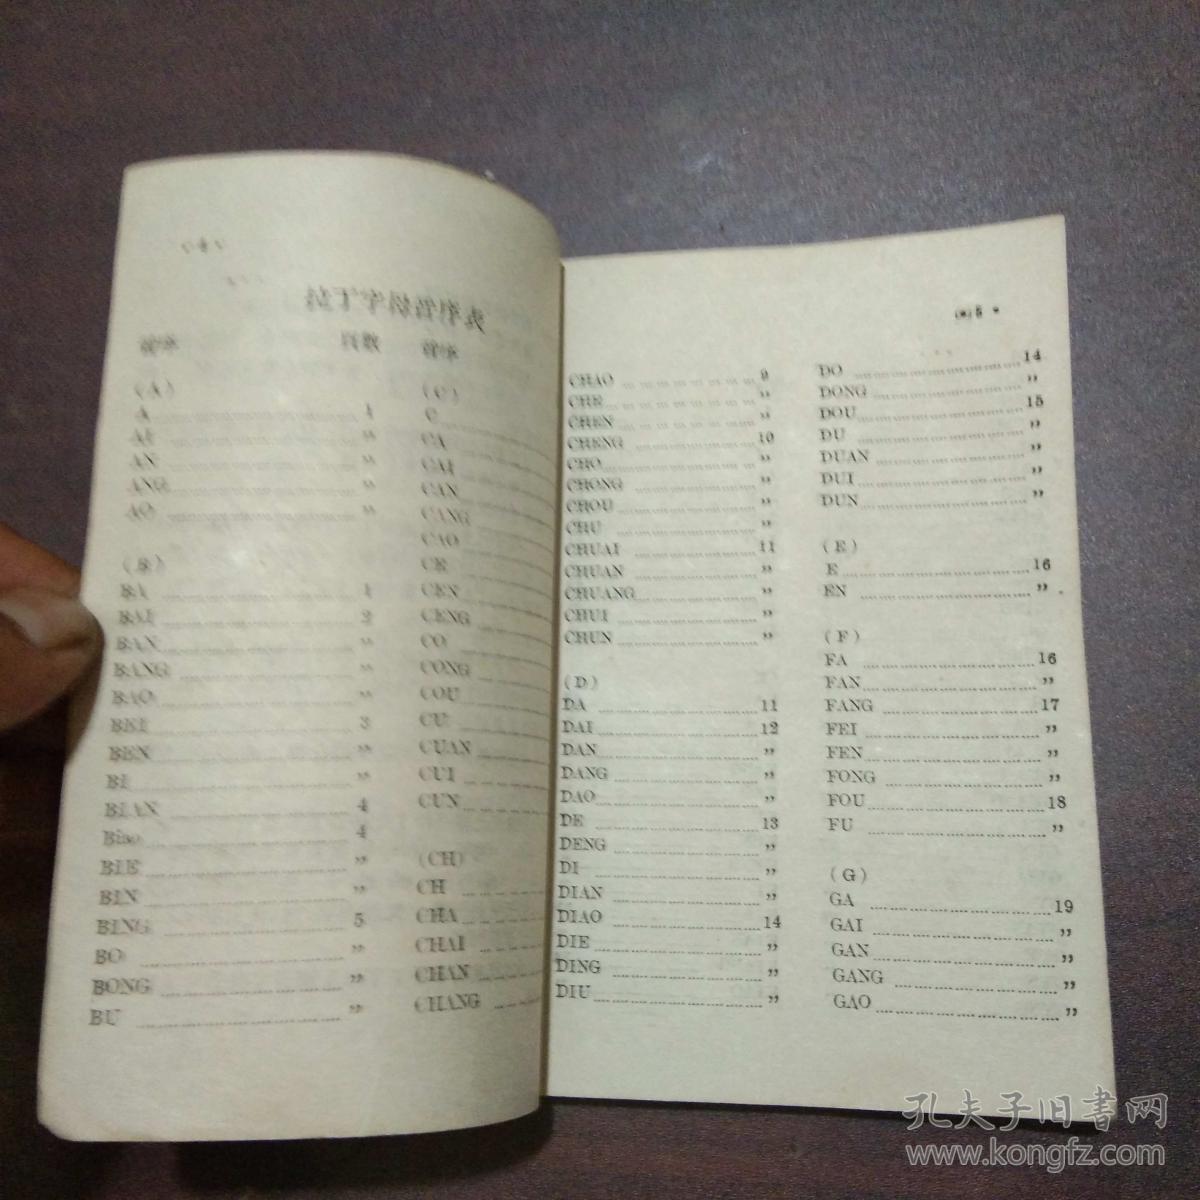 拉丁字母音序表
音序 页数 音序
(A)
A 1
AI "
AN "
ANG "
AO "
(B)
BA 1
BAI 2
BAN "
BANG "
BAO "
BEI 3
BEN "
BI "
BIAN 4
Biao 4
BIE "
BIN "
BING 5
BO "
BONG "
BU "
(C)
C
CA
CAI
CAN
CANG
CAO
CE
CEN
CENG
CO
CONG
COU
CU
CUAN
CUI
CUN
(CH)
CH
CHA
CHAI
CHAN
CHANG
5
CHAO 9
CHE "
CHEN "
CHENG 10
CHO "
CHONG "
CHOU "
CHU "
CHUAI 11
CHUAN "
CHUANG "
CHUI "
CHUN "
(D)
DA 11
DAI 12
DAN "
DANG "
DAO "
DE 13
DENG "
DI "
DIAN "
DIAO 14
DIE "
DING "
DIU "
DO 14
DONG "
DOU 15
DU "
DUAN "
DUI "
DUN "
(E)
E 16
EN "
(F)
FA 16
FAN "
FANG 17
FEI "
FEN "
FONG "
FOU 18
FU "
(G)
GA 19
GAI "
GAN "
GANG "
GAO "
孔夫子旧书网
www.kongfz.com